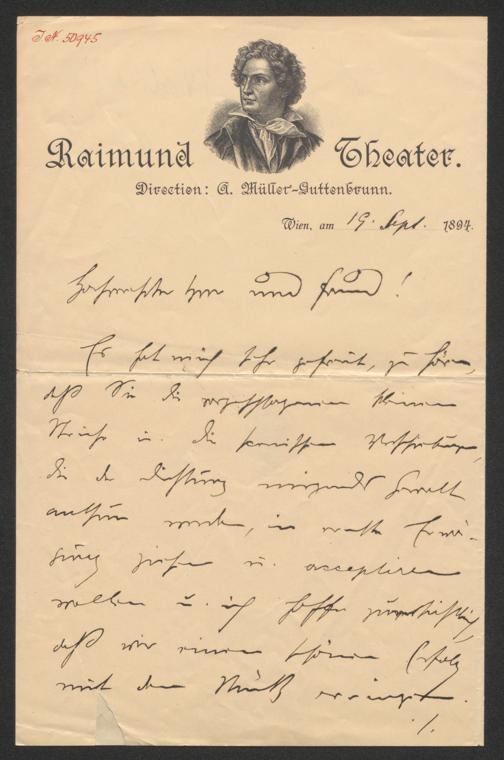 J.N. 50945
Raimund Theater.
Direction: A. Müller-Guttenbrunn.
Wien, am 19. Sept. 1894.
Hochverehrter Herr und Freund!
Es hat mich sehr gefreut, zu hören,
daß Sie die vorgeschlagenen kleinen
Striche u. die scenischen Verschiebungen,
die der Dichtung nirgends Gewalt
anthun werden, in ernste Erwä-
gung ziehen u. acceptiren
wollen u. ich hoffe zuversichtlich,
daß wir einen schönen Erfolg
mit dem Stück erringen.
./.